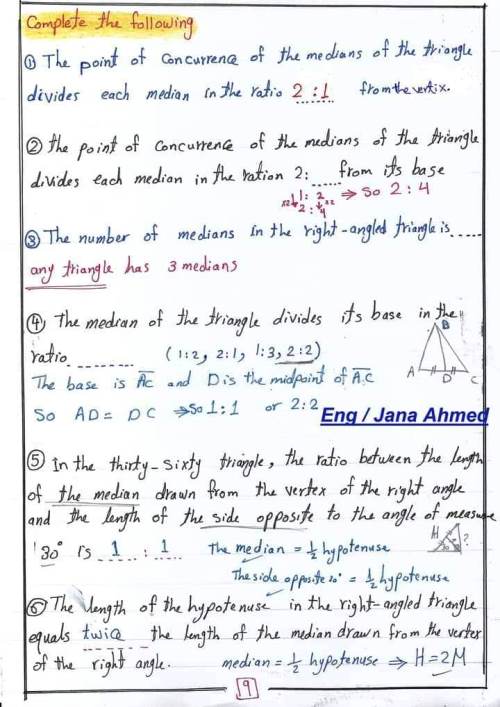 Complete the following
① The point of concurrence of the medians of the triangle
divides each median in the ratio 2 : 1 from the vertix.
② the point of concurrence of the medians of the triangle
divides each median in the ration 2: ..... from its base
x2 1 : 2 x2 ⇒ So 2 : 4
2 : 4
③ The number of medians in the right-angled triangle is .....
any triangle has 3 medians
④ The median of the triangle divides its base in the
ratio ........ (1:2, 2:1, 1:3, 2:2)
The base is AC and D is the midpoint of AC
So AD = DC ⇒ So 1:1 or 2:2
B
A D C
Eng / Jana Ahmed
⑤ In the thirty-sixty triangle, the ratio between the length
of the median drawn from the vertex of the right angle
and the length of the side opposite to the angle of measure
30° is 1 : 1 The median = ½ hypotenuse
H ?
The side opposite 30° = ½ hypotenuse
⑥ The length of the hypotenuse in the right-angled triangle
equals twice the length of the median drawn from the vertex
of the right angle. median = ½ hypotenuse ⇒ H = 2M
9